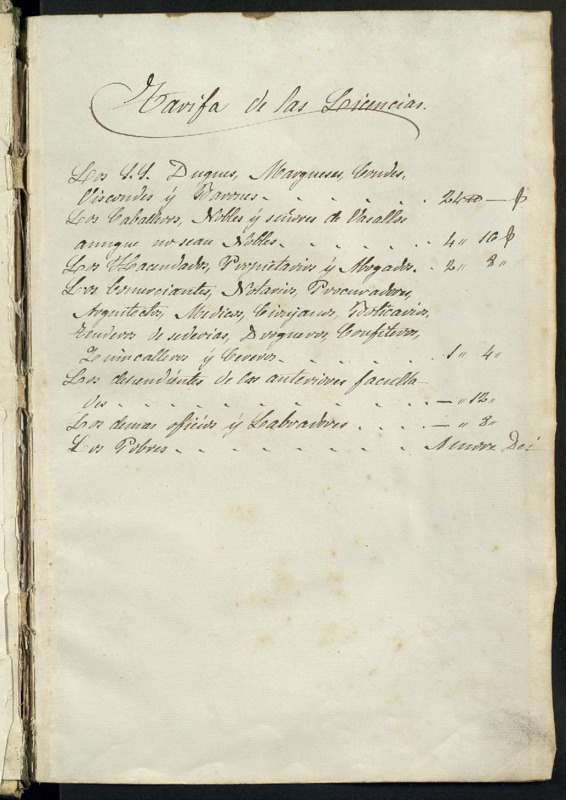 Tarifa de las Licencias.
Los S.S. Duques, Marqueses, Condes,
Viscondes y Barones - - - - - - - 24 ₶ — ß
Los Caballeros, Nobles y señores de Vasallos
aunque no sean Nobles - - - - - 4 " 16 ß
Los Hacendados, Propietarios y Abogados - - 2 " 8 "
Los Comerciantes, Notarios, Procuradores,
Arquitectos, Medicos, Cirujanos, Boticarios,
tenderos de sederias, Drogueros, Confiteros,
Quincalleros y Cereros - - - - - 1 " 4 "
Los descendientes de las anteriores faculta-
des - - - - - - - - - - - - — " 12 "
Los demas oficios y Labradores - - - - — " 8 "
Los Pobres - - - - - - - - - Amore Dei